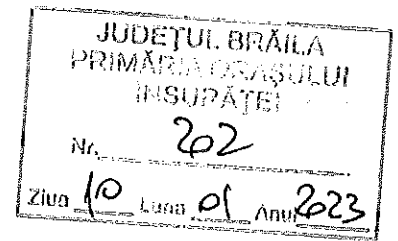 JUDEȚUL BRĂILA
PRIMĂRIA ORAȘULUI
INSURĂȚEI
Nr. 202
Ziua 10 Luna 01 Anul 2023